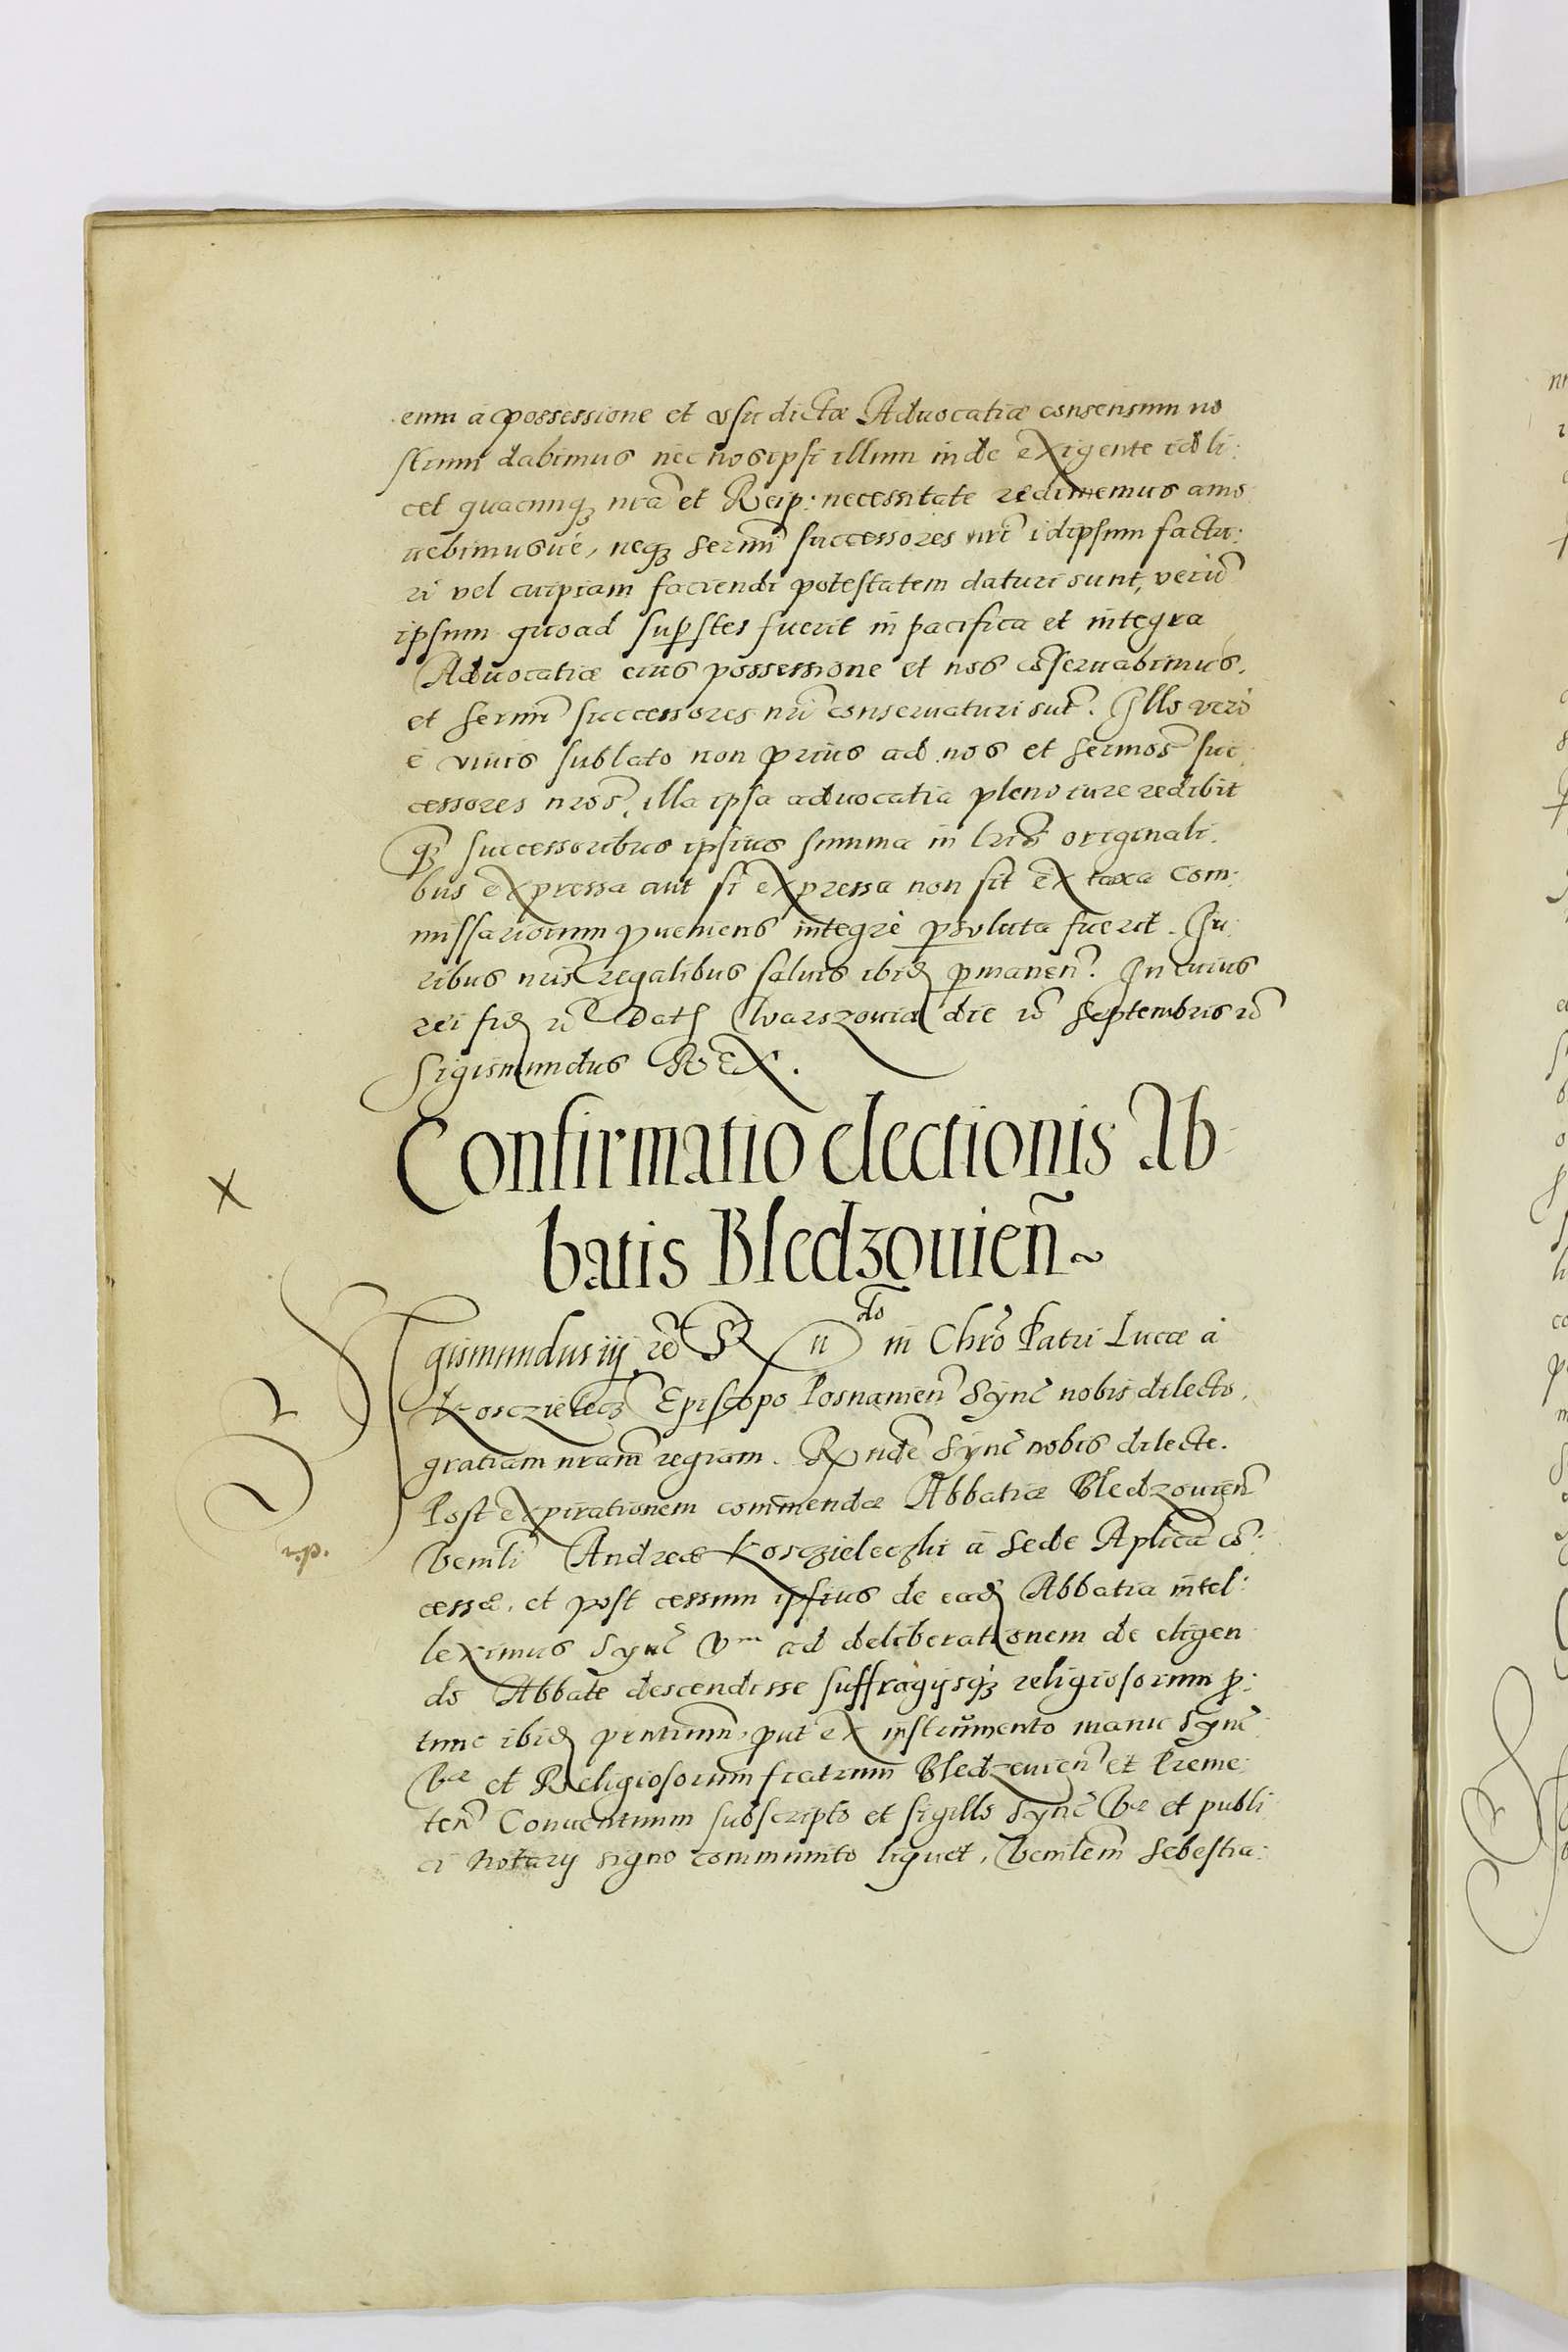 eum à possessione et vsu dictæ Aduocatiæ consensum no
strum dabimus nec nos ipsi illum inde exigente id li:
cet quacunq₃ nr̃a et Reip: necessitate redimemus amo
uebimusué, neq₃ serm̃i successores nr̃i idipsum factu:
ri vel cuipiam faciendi potestatem daturi sunt, verũ
ipsum quoad supstes fuerit in pacifica et integra
Aduocatiæ eius possessione et nos cõseruabimus,
et serm̃i successores nr̃i conseruaturi sut̃. Illo verò
è viuis sublato non prius ad nos et sermos̃ suc:
cessores nros̃, illa ipsa aduocatia pleno iure redibit
q₃ successoribus ipsius summa in lrĩs originali:
bus expressa aut si expressa non sit ex taxa com:
missariorum pueniens integrè psoluta fuerit. Iu:
ribus nris̃ regalibus saluis ibid permaneñ. In cuius
rei fid rc̃ Dat Warszouiæ die rc̃ Septembris rc̃
Sigismundus REX.
Confirmatio electionis Ab-
batis Bledzouieñ~
X
Sigismundus iij rc̃ R n do in Chrõ Patri Lucæ à
Kosczielecz Episcopo Posnanieñ Synč nobis dilecto,
gratiam nram̃ regiam. Rnde Synč nobis dilecte.
Post expirationem commendæ Abbatiæ Bledzouieñ
Vemli Andreæ Kosczieleczki à Sede Aplica cõ:
cessæ, et post cessum ipsius de ead Abbatia intel:
leximus Synč Vm ad deliberationem de eligen
do Abbate descendisse suffragijsq₃ religiosorum p:
tunc ibid pñtium, put ex instrumento manu Synč
Vræ et Religiosorum fratrum Bledzeuieñ et Preme:
teñ Conuentuum subscripto et sigillo Synč Vræ et publi
ci Notarij signo communito liquet, Vemlem̃ Sebestia:
r.p.